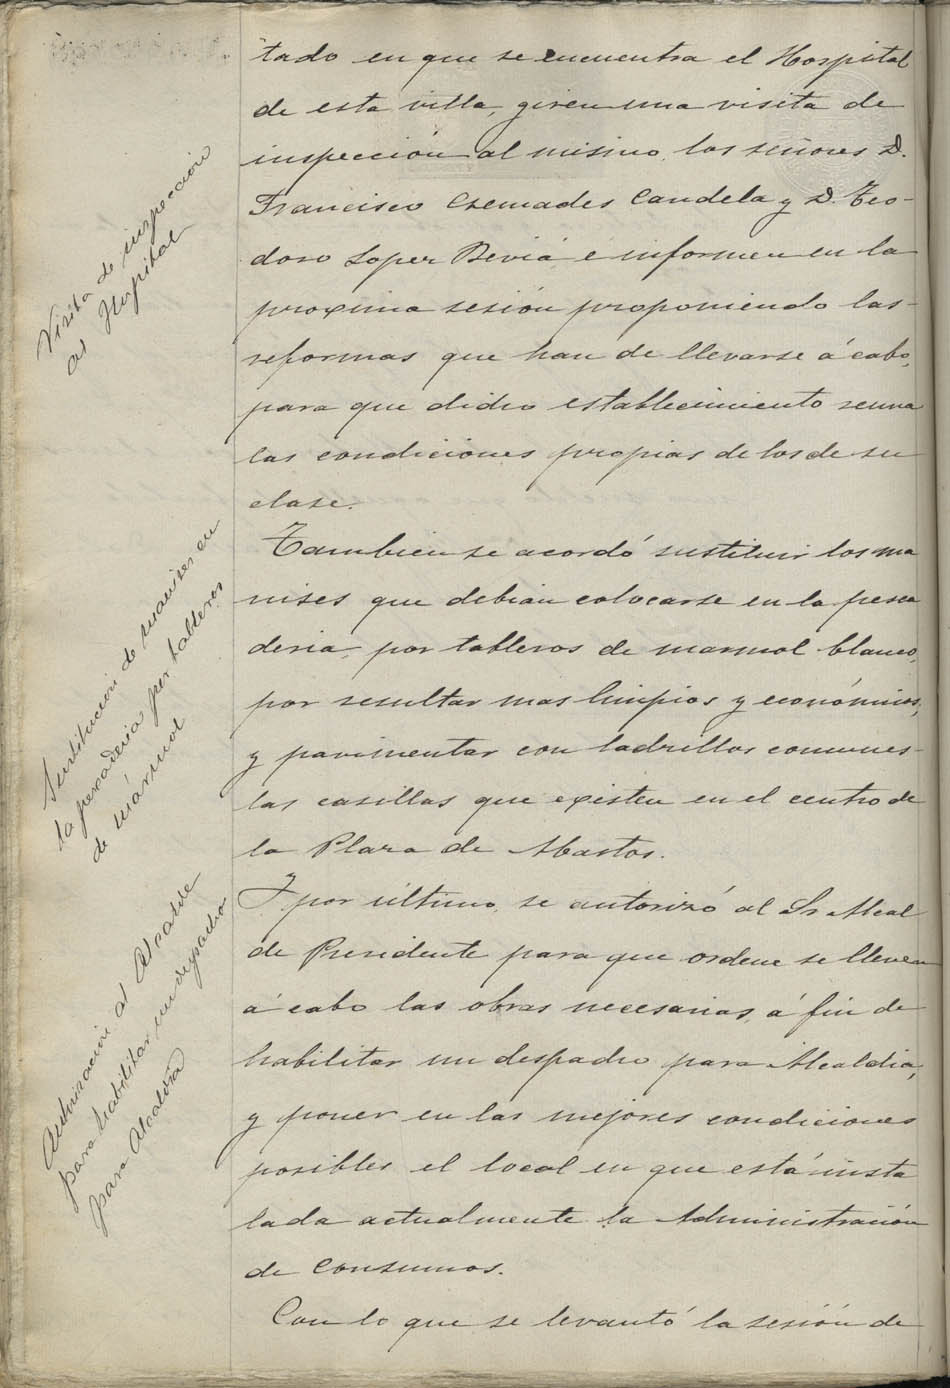 tado en que se encuentra el Hospital
de esta villa, giren una visita de
inspección al mismo, los señores D.
Francisco Cremades Candela y D. Teo-
doro Soper Beviá e informen en la
proxima sesión proponiendo las
reformas que han de llevarse á cabo,
para que dicho establecimiento reuna
las condiciones propias de los de su
clase.
Tambien se acordó sustituir los ma
nises que debian colocarse en la pesca
deria, por tableros de marmol blanco,
por resultar mas limpios y económicos,
y pavimentar con ladrillos comunes
las casillas que existen en el centro de
la Plaza de Abastos.
Y por último, se autorizó al Sr Alcal
de Presidente para que ordene se lleven
á cabo las obras necesarias, á fin de
habilitar un despacho para Alcaldia,
y poner en las mejores condiciones
posibles el local en que está insta
lada actualmente la Administración
de Consumos.
Con lo que se levantó la sesión de
Visita de inspección
al Hospital
Sustitucion de manises en
la pescaderia por tableros
de mármol
Autorización al Alcalde
para habilitar un despacho
para Alcaldía